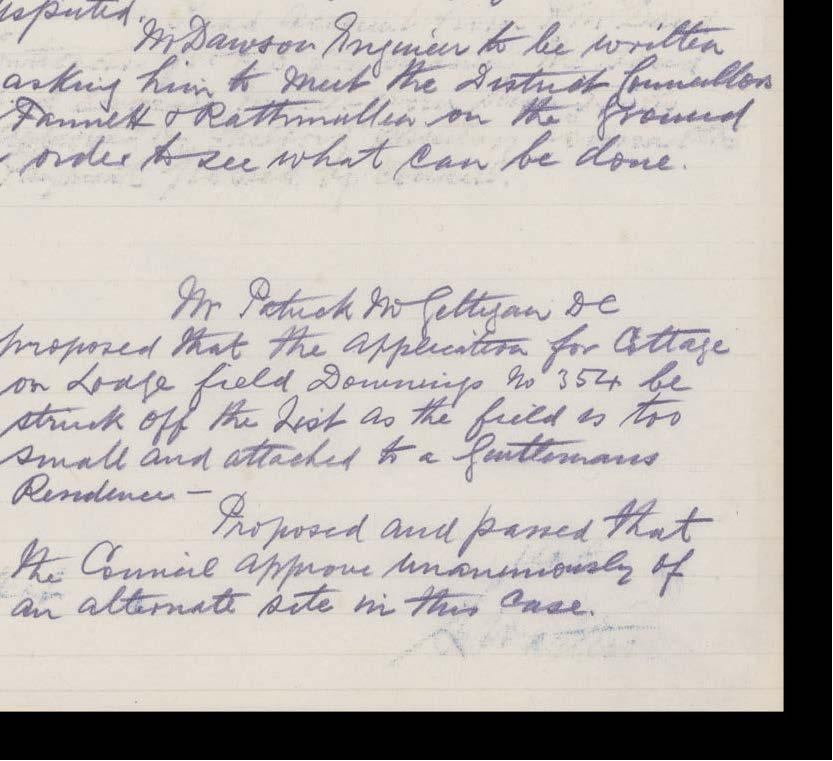 isputed.
Mr Dawson Engineer to be written
asking him to meet the District Councillors
Fannett & Rathmullen on the Ground
order to see what can be done.
Mr Patrick McGettigan DC
proposed that the Application for Cottage
on Lodge field Downings No 354 be
struck off the List as the field is too
small and attached to a Gentlemans
Residence —
Proposed and passed that
the Council approve unanimously of
an alternate site in this Case.